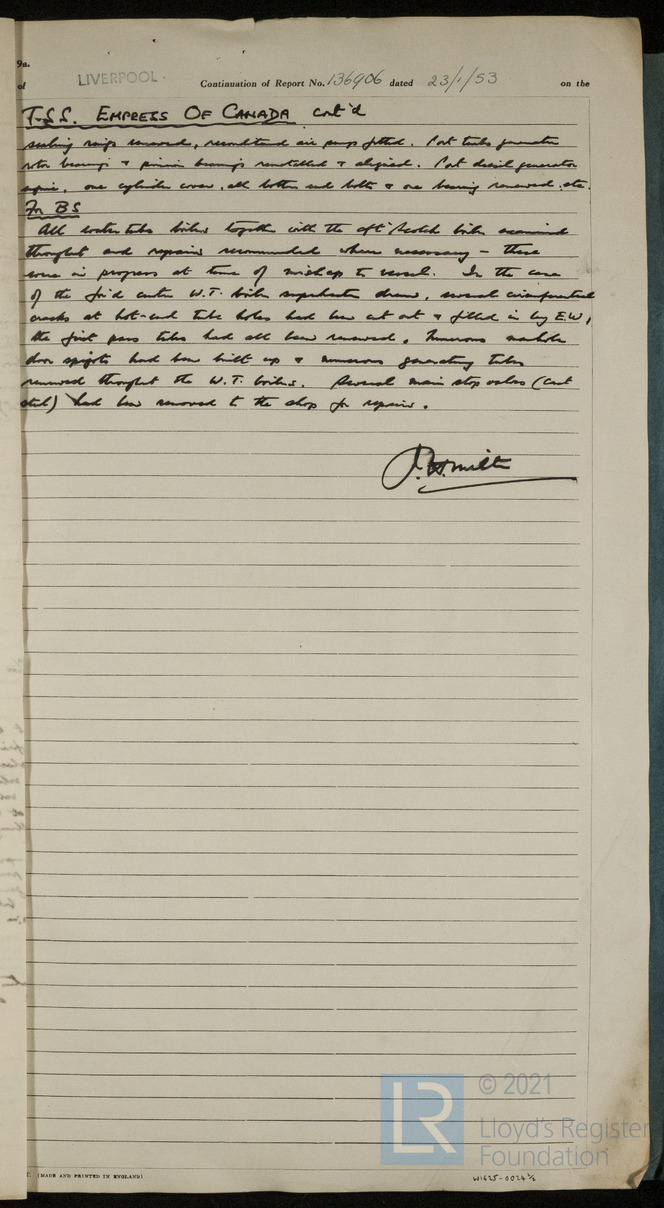 9a.
of LIVERPOOL. Continuation of Report No. 136906 dated 23/1/53 on the
T.S.S. EMPRESS OF CANADA cont'd
sealing rings renewed, reconditioned air pumps fitted. Port turbo generator
rotor bearings & pinion bearings remetalled & aligned. Port diesel generator
engine, one cylinder cover, all bottom end bolts & one bearing renewed, etc.
For BS
All water tube boilers together with the aft Scotch boiler examined
throughout and repairs recommended where necessary – these
were in progress at time of mishap to vessel. In the case
of the for'd centre W.T. boiler superheater drum, several circumferential
cracks at hot-end tube holes had been cut out & filled in by E.W,
the first pass tubes had all been renewed. Numerous manhole
door spigots had been built up & numerous generating tubes
renewed throughout the W.T. boilers. Several main stop valves (cast
steel) had been removed to the shop for repairs.
(MADE AND PRINTED IN ENGLAND)
W1625-0024 ½
LR
© 2021
Lloyd's Register
Foundation